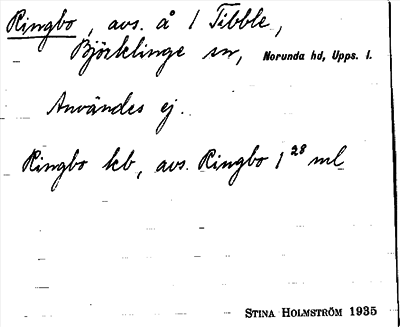 Ringbo, avs. å 1 Tibble,
Björklinge sn, Norunda hd, Upps. l.
Användes ej.
Ringbo kb, avs. Ringbo 1²⁸ ml
STINA HOLMSTRÖM 1935